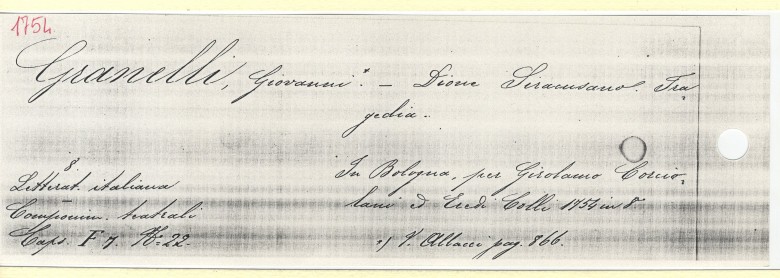 1754.
Granelli, Giovanni*. — Dione Siracusano. Tra
gedia..
In Bologna, per Girolamo Corcio-
lani ed Eredi Colli 1754 in 8°
*) V. Allacci pag. 866.
8
Letterat. italiana
Componim. teatrali
Caps. F 7. N: 22.